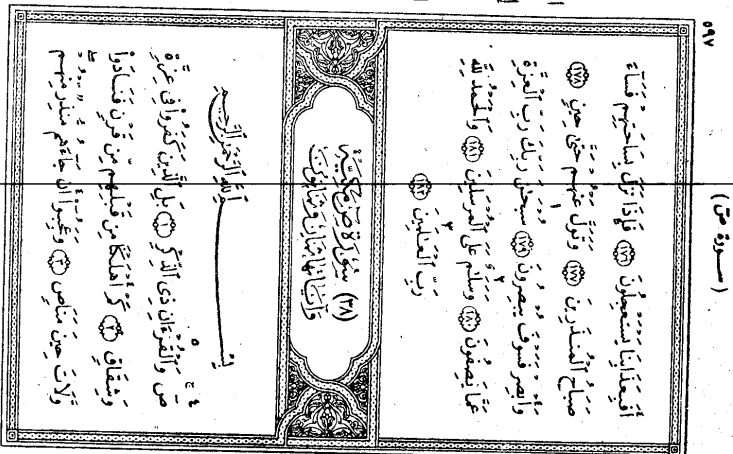 ٥٩٧
( سـورة ص )
أَفَبِعَذَابِنَا يَسْتَعْجِلُونَ ﴿١٧٦﴾ فَإِذَا نَزَلَ بِسَاحَتِهِمْ فَسَآءَ
صَبَاحُ الْمُنذَرِينَ ﴿١٧٧﴾ وَتَوَلَّ عَنْهُمْ حَتَّىٰ حِينٍ ﴿١٧٨﴾
وَأَبْصِرْ فَسَوْفَ يُبْصِرُونَ ﴿١٧٩﴾ سُبْحَٰنَ رَبِّكَ رَبِّ الْعِزَّةِ
عَمَّا يَصِفُونَ ﴿١٨٠﴾ وَسَلَٰمٌ عَلَى الْمُرْسَلِينَ ﴿١٨١﴾ وَالْحَمْدُ لِلَّهِ
رَبِّ الْعَٰلَمِينَ ﴿١٨٢﴾
(٣٨) سُوْرَةُ صٓ مَكِّيَّة
وَآيَاتُهَا ثَمَانٌ وَثَمَانُونَ
بِسْمِ اللَّهِ الرَّحْمَٰنِ الرَّحِيمِ
صٓ وَالْقُرْءَانِ ذِي الذِّكْرِ ﴿١﴾ بَلِ الَّذِينَ كَفَرُوا فِي عِزَّةٍ
وَشِقَاقٍ ﴿٢﴾ كَمْ أَهْلَكْنَا مِن قَبْلِهِم مِّن قَرْنٍ فَنَادَوا
وَّلَاتَ حِينَ مَنَاصٍ ﴿٣﴾ وَعَجِبُوا أَن جَآءَهُم مُّنذِرٌ مِّنْهُمْ